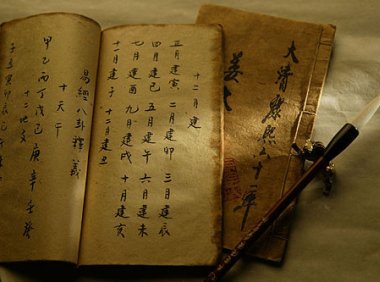 大清康熙六十一年
姜
十二月建
正月建寅 二月建卯 三月建辰
四月建巳 五月建午 六月建未
七月建酉 九月建戌 十月建亥
十一月建子 十二月建丑
易經八卦釋義
十天干
甲乙丙丁戊己庚辛壬癸
十二地支
子丑寅卯辰巳午